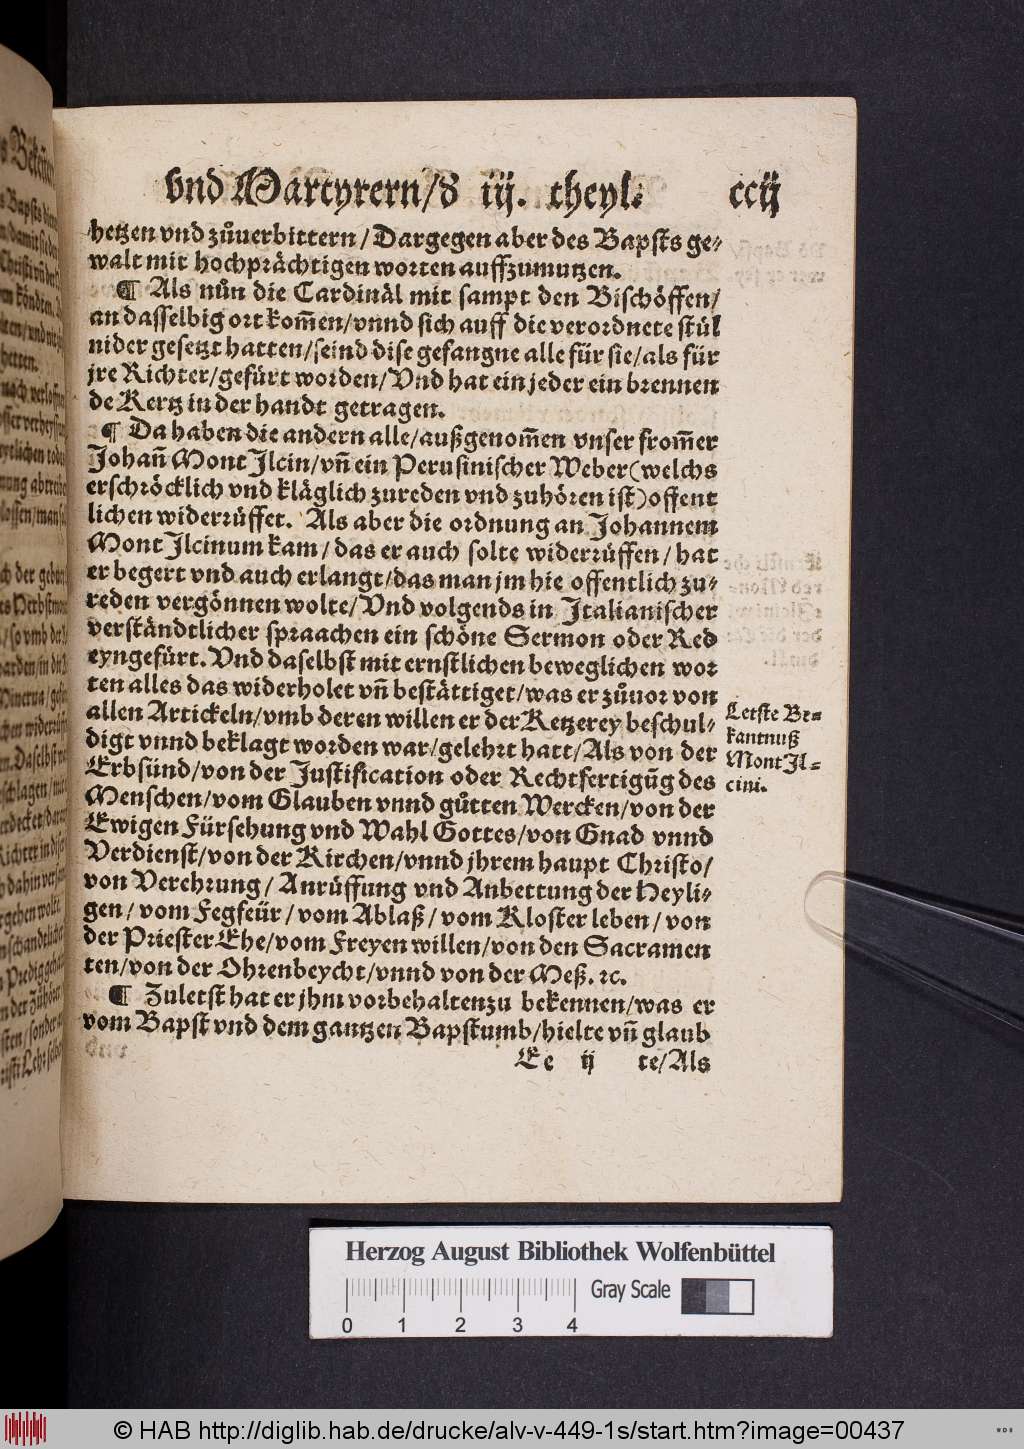 vnd Martyrern/8 iij. theyl. ccij
hetzen vnd zůuerbittern/Dargegen aber des Bapsts ge-
walt mit hochprächtigen worten auffzumutzen.
¶ Als nůn die Cardinäl mit sampt den Bischöffen/
an dasselbig ort kom̃en/vnnd sich auff die verordnete stül
nider gesetzt hatten/seind dise gefangne alle für sie/als für
jre Richter/gefürt worden/Vnd hat ein jeder ein brennen
de Kertz in der handt getragen.
¶ Da haben die andern alle/außgenom̃en vnser from̃er
Johañ Mont Jlcin/vñ ein Perusinischer Weber(welchs
erschröcklich vnd kläglich zureden vnd zuhören ist)offent
lichen widerrüffet. Als aber die ordnung an Johannem
Mont Jlcinum kam/das er auch solte widerrüffen/hat
er begert vnd auch erlangt/das man jm hie offentlich zu-
reden vergönnen wolte/Vnd volgends in Jtalianischer
verständtlicher spraachen ein schöne Sermon oder Red
eyngefürt. Vnd daselbst mit ernstlichen beweglichen wor
ten alles das widerholet vñ bestättiget/was er zůuor von
allen Artickeln/vmb deren willen er der Ketzerey beschul-
digt vnnd beklagt worden war/gelehrt hatt/Als von der
Erbsünd/von der Justification oder Rechtfertigũg des
Menschen/vom Glauben vnnd gůtten Wercken/von der
Ewigen Fürsehung vnd Wahl Gottes/von Gnad vnnd
Verdienst/von der Kirchen/vnnd jhrem haupt Christo/
von Verehrung/Anrüffung vnd Anbettung der Heyli-
gen/vom Fegfeür/vom Ablaß/vom Kloster leben/von
der Priester Ehe/vom Freyen willen/von den Sacramen
ten/von der Ohrenbeycht/vnnd von der Meß. ꝛc.
¶ Zuletst hat er jhm vorbehalten zu bekennen/was er
vom Bapst vnd dem gantzen Bapstumb/hielte vñ glaub
Ee ij te/Als
Letste Be-
kantnuß
Mont Jl-
cini.
Herzog August Bibliothek Wolfenbüttel
Gray Scale
0 1 2 3 4
© HAB http://diglib.hab.de/drucke/alv-v-449-1s/start.htm?image=00437